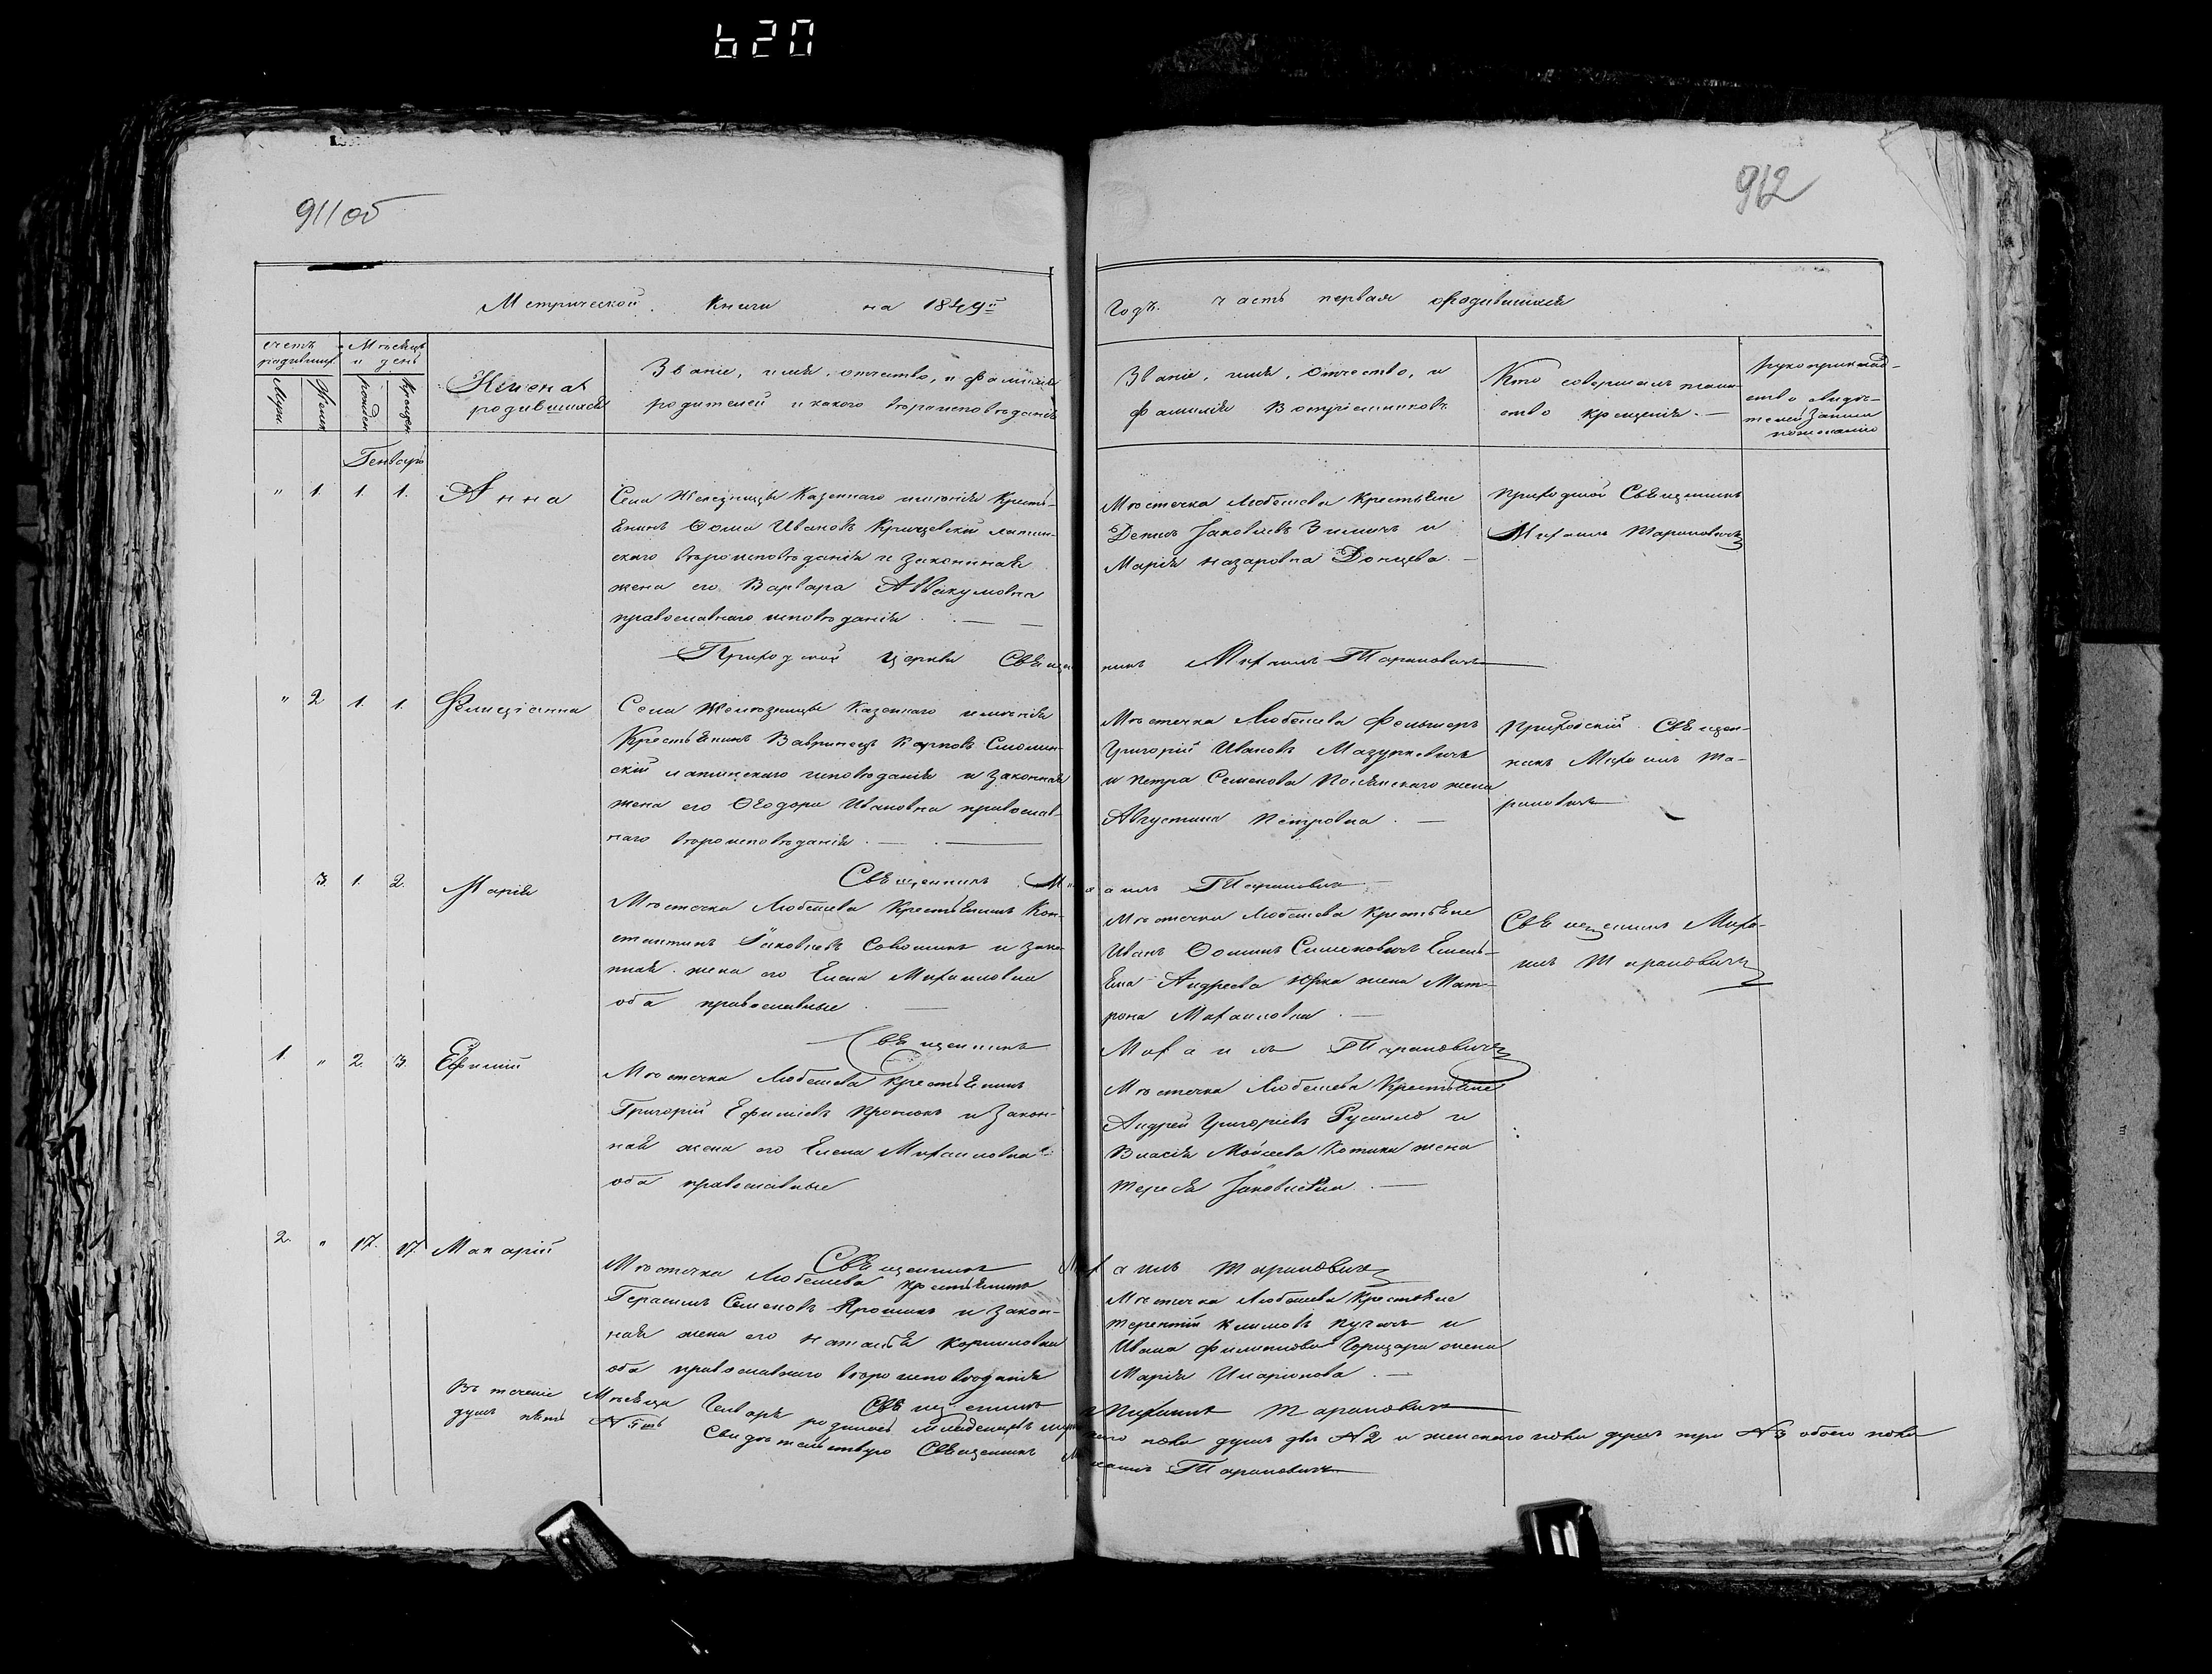 620
911об
912
Метрической Книги на 1849й
Годъ. часть первая о родившихся
счетъ родившихся
Мѣсяцъ и день
Муж.
Женск.
рожден.
крещен.
Имена родившихся
Званіе, имя, отчество, и фамилія
родителей и какого вѣроисповѣданія
Званіе, имя, отчество, и
фамилія Воспріемниковъ
Кто совершалъ таин-
ство крещенія. —
рукоприклад-
ство свидѣ-
телей записи
по желанію
Генварь
" 1. 1. 1. Анна
Села Железницы Казеннаго имѣнія Кресть-
янинъ Ѳома Ивановъ латин-
скаго вѣроисповѣданія и законная
жена его Варвара Аввакумовна
православнаго исповѣданія. — —
Мѣстечка Любешева Крестьяне
Денисъ Іаковлевъ Зимичъ и
Марія Назаровна Донцева. —
Приходской Священникъ
Михаилъ Тарановичъ
Приходской Церкви Священникъ Михаилъ Тарановичъ
" 2 1. 1. Фелиціанна
Села Желѣзницы Казеннаго имѣнія
Крестьянинъ Вавринецъ Карповъ
латинскаго исповѣданія и законная
жена его Ѳеодора Ивановна православ-
наго вѣроисповѣданія. — —
Мѣстечка Любешева Фельшеръ
Григорій Ивановъ Мазуркевичъ
и Петра Семенова Полянскаго жена
Августина Петровна. —
Приходскій Священ-
никъ Михаилъ Та-
рановичъ
Священникъ Михаилъ Тарановичъ
3. 1. 2. Марія
Мѣстечка Любешева Крестьянинъ Кон-
стантинъ Іаковлевъ и зако-
нная жена его Елена Михаиловна
оба православные. —
Мѣстечка Любешева Крестьяне
Иванъ Ѳоминъ Симоновичъ Емель-
яна Андреева Юрка жена Мат-
рона Михаиловна. —
Священникъ Миха-
илъ Тарановичъ
Священникъ Михаилъ Тарановичъ
1. " 2. 3. Ефимій
Мѣстечка Любешева Крестьянинъ
Григорій Ефиміевъ и Закон-
ная жена его Елена Михаиловна
оба православные
Мѣстечка Любешева Крестьяне
Андрей Григоріевъ и
Власія Моисеева Котика жена
Тереся Іаковлевна. —
Священникъ Михаилъ Тарановичъ
2. " 17. 17 Макарій
Мѣстечка Любешева Крестьянинъ
Герасимъ Семеновъ и закон-
ная жена его Наталья Корниловна
оба православнаго вѣроисповѣданія
Мѣстечка Любешева Крестьяне
Терентій Климовъ и
Ивана Филиппова жена
Марія Иларіонова. —
Священникъ Михаилъ Тарановичъ
Въ теченіе Мѣсяца Генваря родилось младенцевъ мужскаго пола душъ двѣ №2 и женскаго пола душъ три №3 обоего пола
душъ пять №5ть Свидѣтельствую Священникъ Михаилъ Тарановичъ